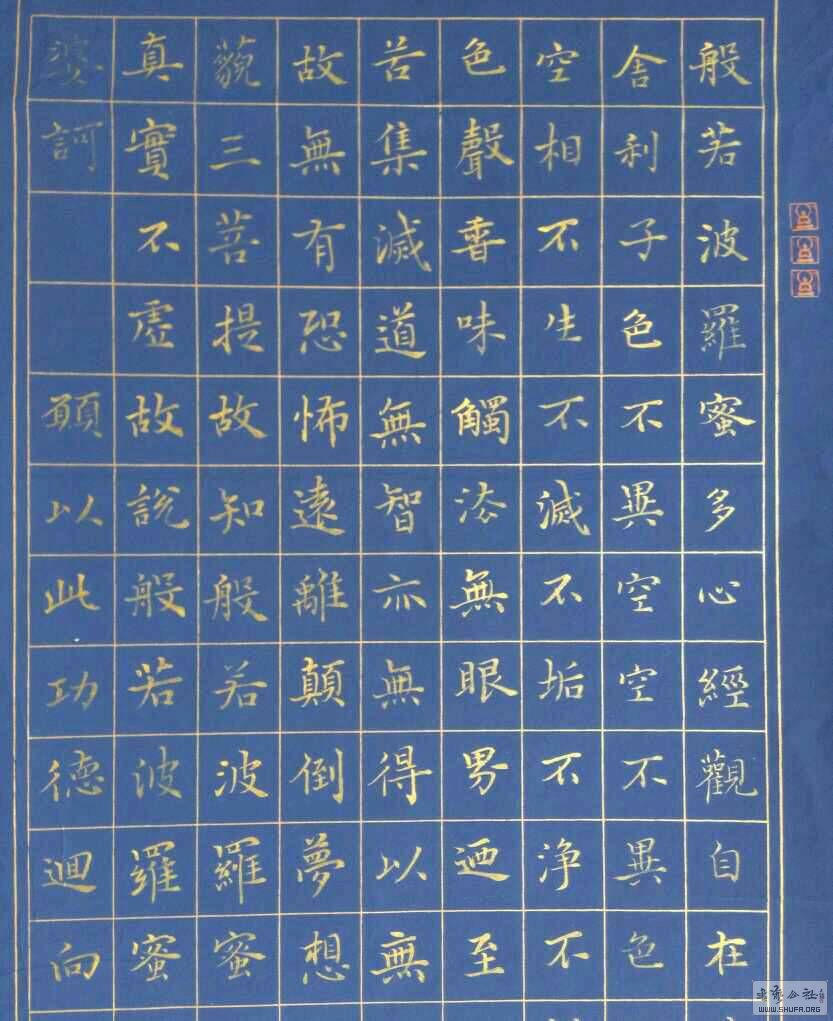 般若波羅蜜多心經觀自在
舍利子色不異空空不異色
空相不生不滅不垢不淨不
色聲香味觸法無眼界迺至
苦集滅道無智亦無得以無
故無有恐怖遠離顛倒夢想
藐三菩提故知般若波羅蜜
真實不虛故說般若波羅蜜
婆訶 願以此功德迴向
书法公社
WWW.SHUFA.ORG